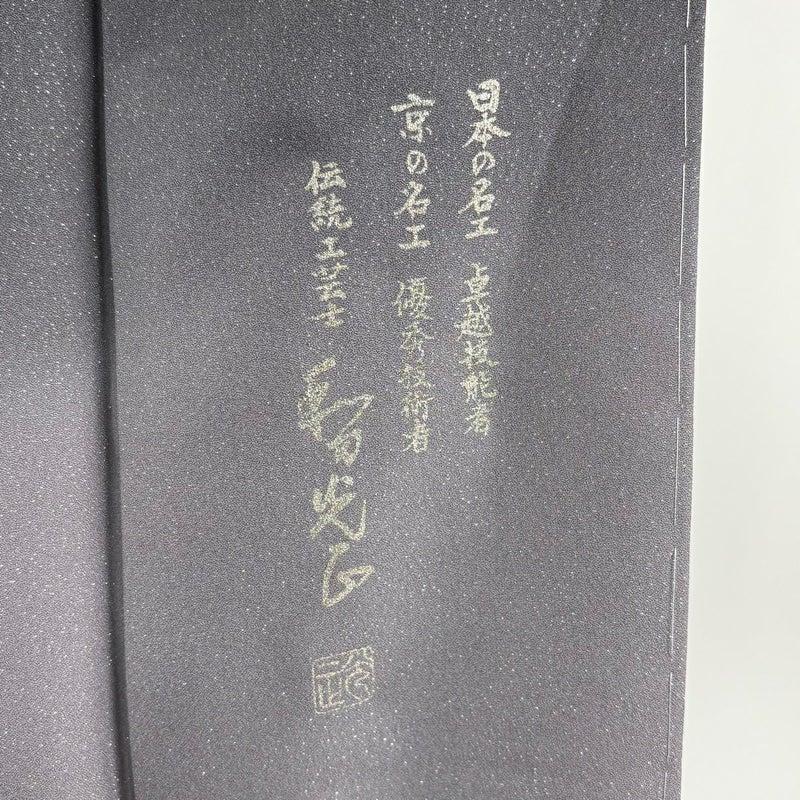 日本の名工 卓越技能者
京の名工 優秀技術者
伝統工芸士
光正
光正